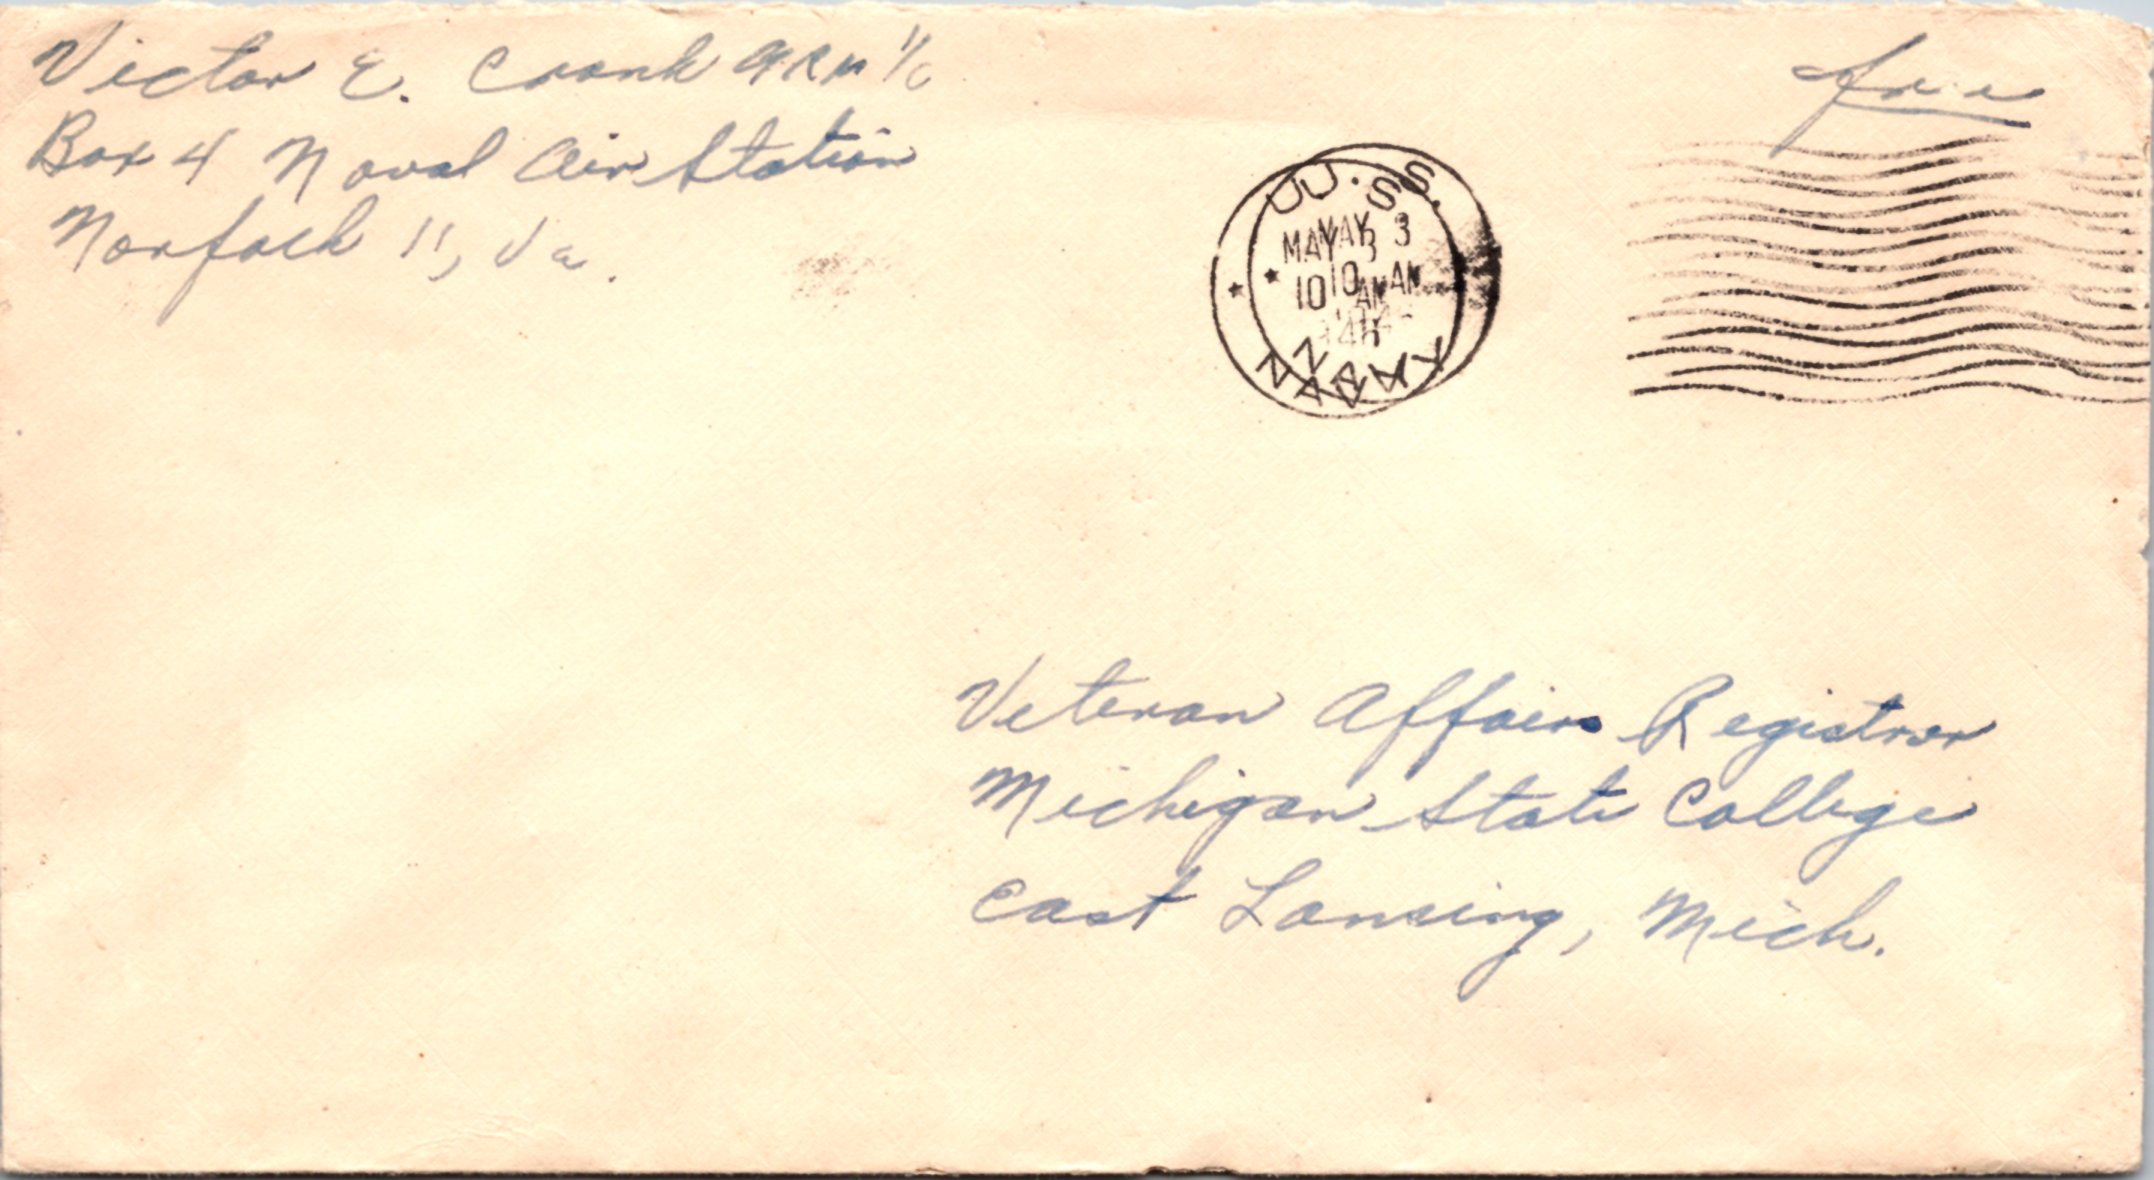 Victor E. Cronk ARM 1/c
Box 4 Naval Air Station
Norfolk 11, Va.
free
U.S.
MAY 3
10 AM
NAVY
Veteran Affairs Registrar
Michigan State College
East Lansing, Mich.